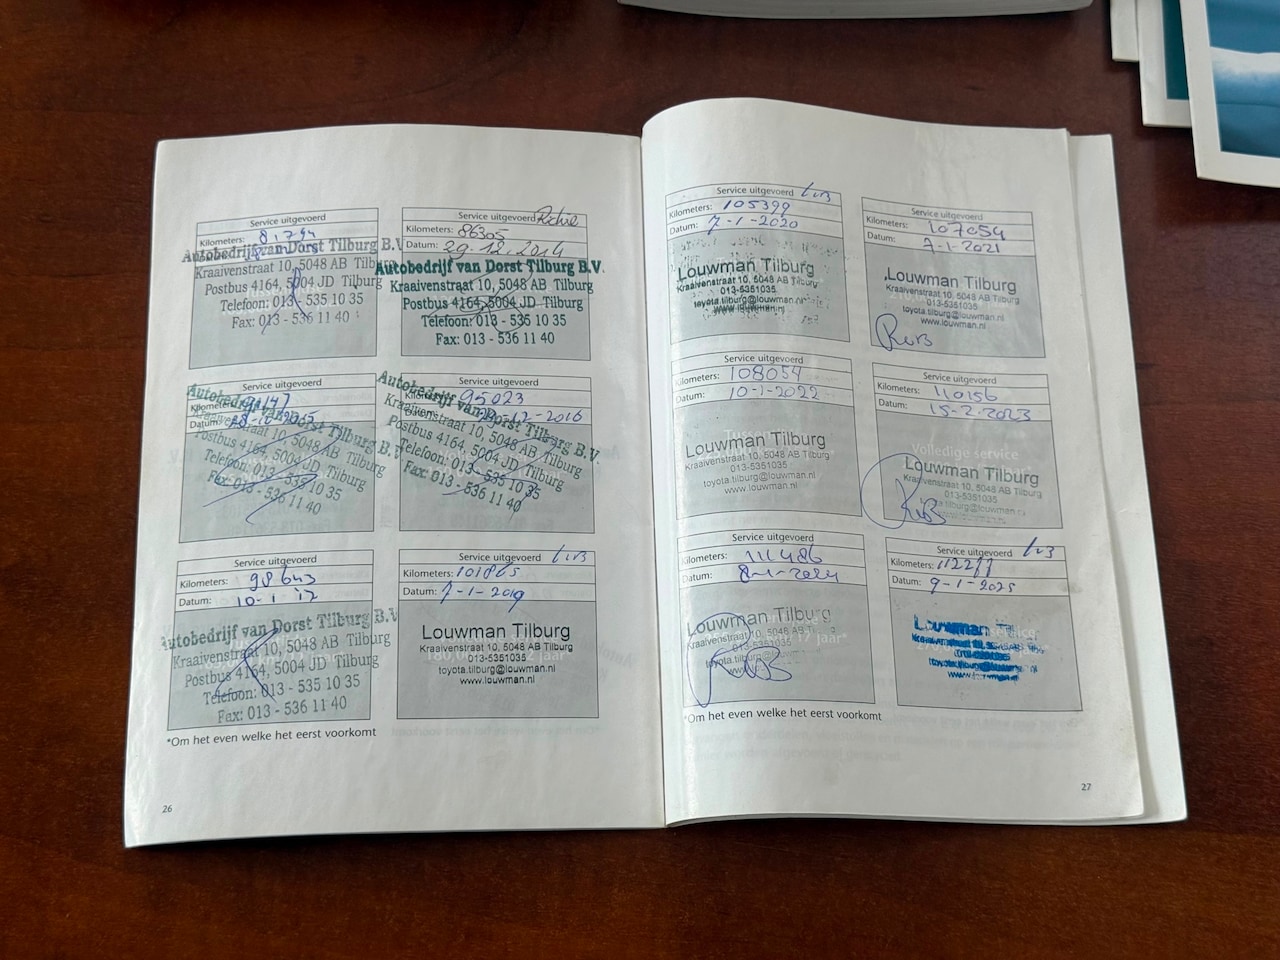 Service uitgevoerd
Kilometers: 81794
Autobedrijf van Dorst Tilburg B.V.
Kraaivenstraat 10, 5048 AB Tilburg
Postbus 4164, 5004 JD Tilburg
Telefoon: 013 - 535 10 35
Fax: 013 - 536 11 40
Service uitgevoerd
Kilometers: 86305
Datum: 29.12.2014
Autobedrijf van Dorst Tilburg B.V.
Kraaivenstraat 10, 5048 AB Tilburg
Postbus 4164, 5004 JD Tilburg
Telefoon: 013 - 535 10 35
Fax: 013 - 536 11 40
Service uitgevoerd
Kilometers:
Datum:
Autobedrijf van Dorst Tilburg B.V.
Kraaivenstraat 10, 5048 AB Tilburg
Postbus 4164, 5004 JD Tilburg
Telefoon: 013 - 535 10 35
Fax: 013 - 536 11 40
Service uitgevoerd
Kilometers: 95023
Datum: 12-2016
Autobedrijf van Dorst Tilburg B.V.
Kraaivenstraat 10, 5048 AB Tilburg
Postbus 4164, 5004 JD Tilburg
Telefoon: 013 - 535 10 35
Fax: 013 - 536 11 40
Service uitgevoerd
Kilometers: 98643
Datum: 10-1
Autobedrijf van Dorst Tilburg B.V.
Kraaivenstraat 10, 5048 AB Tilburg
Postbus 4164, 5004 JD Tilburg
Telefoon: 013 - 535 10 35
Fax: 013 - 536 11 40
Service uitgevoerd
Kilometers: 101865
Datum: 7-1-2019
Louwman Tilburg
Kraaivenstraat 10, 5048 AB Tilburg
013-5351035
toyota.tilburg@louwman.nl
www.louwman.nl
*Om het even welke het eerst voorkomt
26
Service uitgevoerd
Kilometers: 105399
Datum: 7-1-2020
Louwman Tilburg
Kraaivenstraat 10, 5048 AB Tilburg
013-5351035
toyota.tilburg@louwman.nl
www.louwman.nl
Service uitgevoerd
Kilometers: 107054
Datum: 7-1-2021
Louwman Tilburg
Kraaivenstraat 10, 5048 AB Tilburg
013-5351035
toyota.tilburg@louwman.nl
www.louwman.nl
Service uitgevoerd
Kilometers: 108054
Datum: 10-1-2022
Louwman Tilburg
Kraaivenstraat 10, 5048 AB Tilburg
013-5351035
toyota.tilburg@louwman.nl
www.louwman.nl
Service uitgevoerd
Kilometers: 110156
Datum: 15-2-2023
Volledige service
Louwman Tilburg
Kraaivenstraat 10, 5048 AB Tilburg
013-5351035
toyota.tilburg@louwman.nl
Service uitgevoerd
Kilometers: 111486
Datum: 8-1-2024
Louwman Tilburg
Kraaivenstraat 10, 5048 AB Tilburg
013-5351035
toyota.tilburg@louwman.nl
Service uitgevoerd
Kilometers: 112277
Datum: 9-1-2025
Louwman
*Om het even welke het eerst voorkomt
27